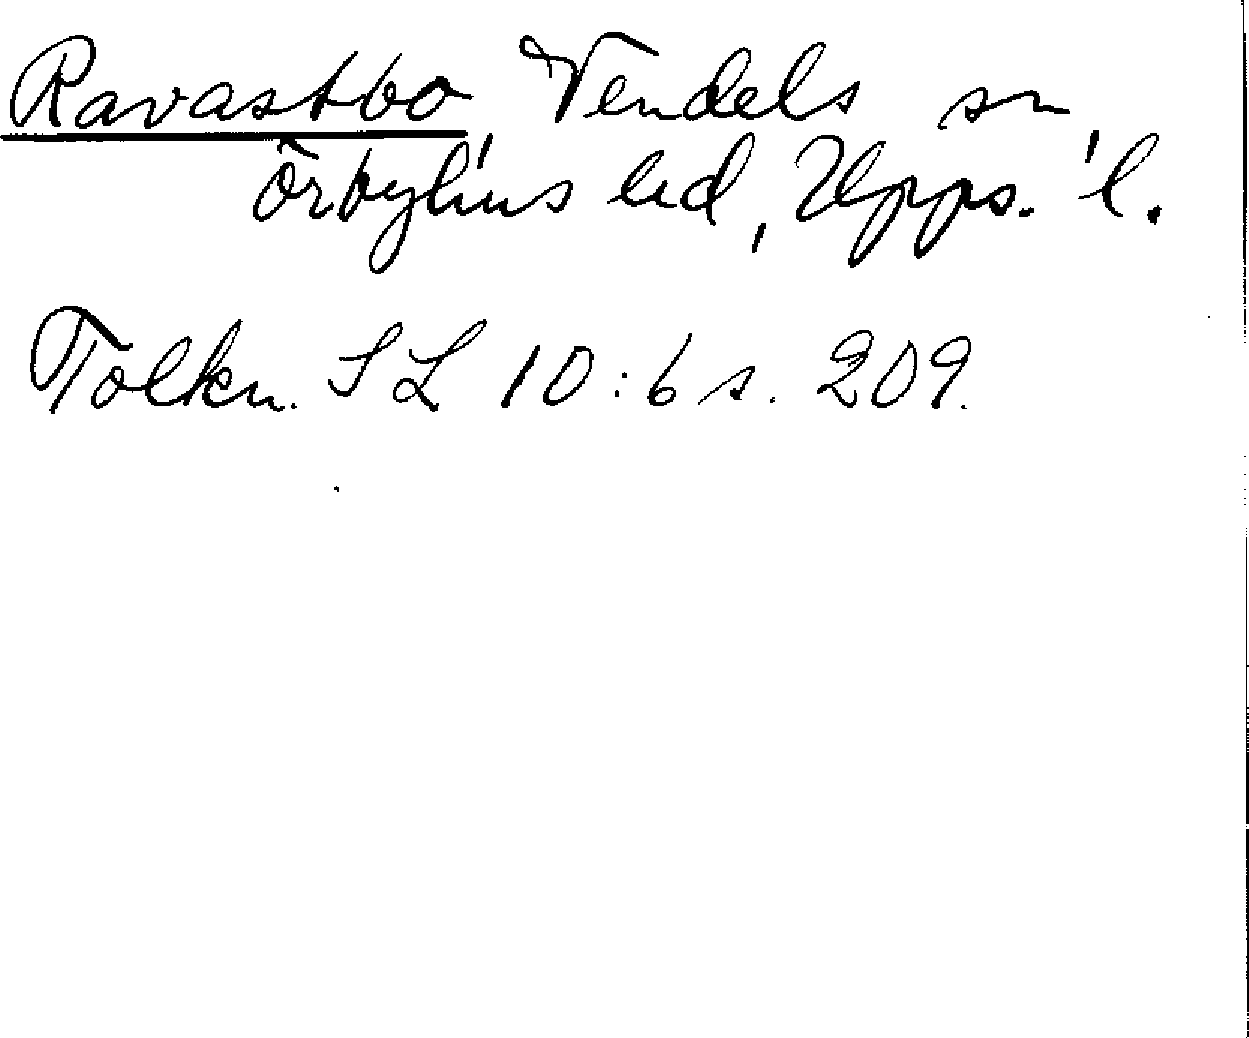 Ravastbo, Vendels sn,
Örbyhus hd, Upps. l.
Tolkn. SL 10:6 s. 209.